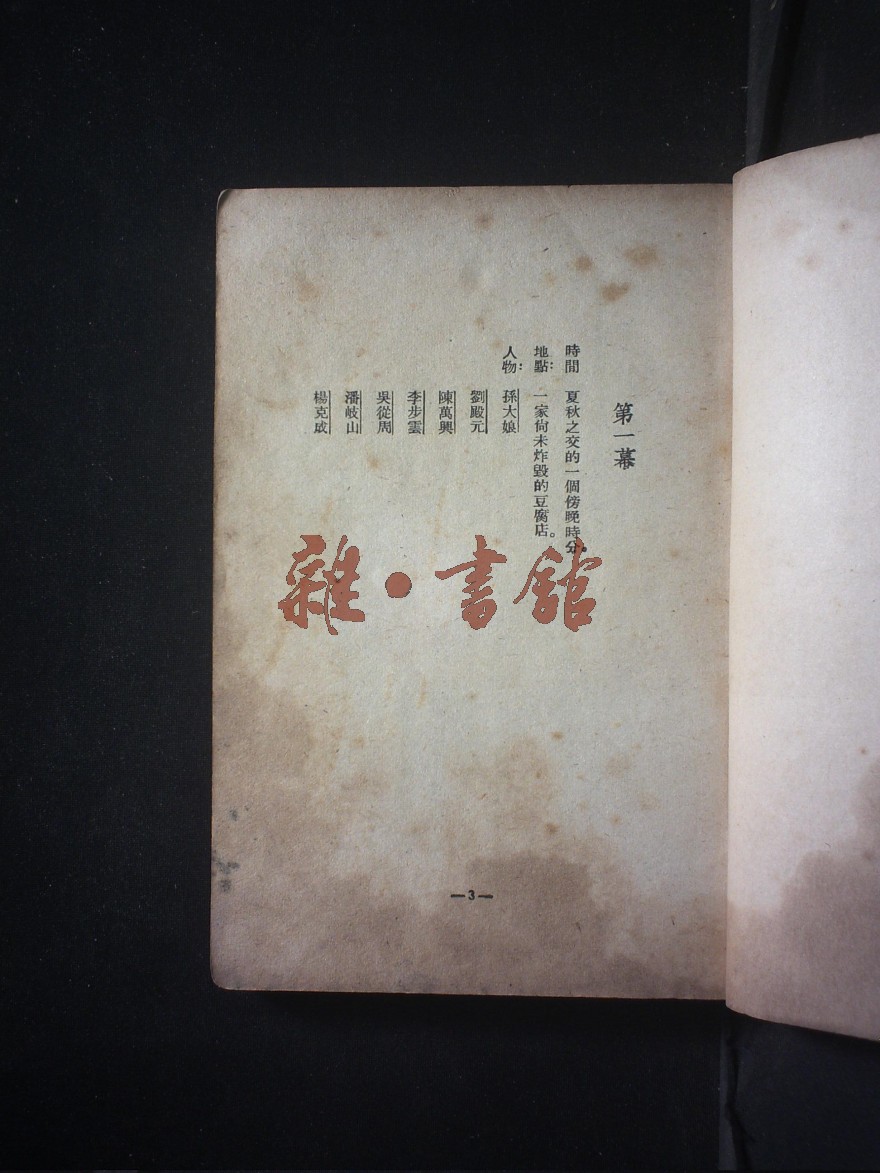 第一幕
時間　夏秋之交的一個傍晚時分。
地點：一家尙未炸毀的豆腐店。
人物：孫大娘
劉殿元
陳萬興
李步雲
吳從周
潘岐山
楊克成
雜·書館
—3—